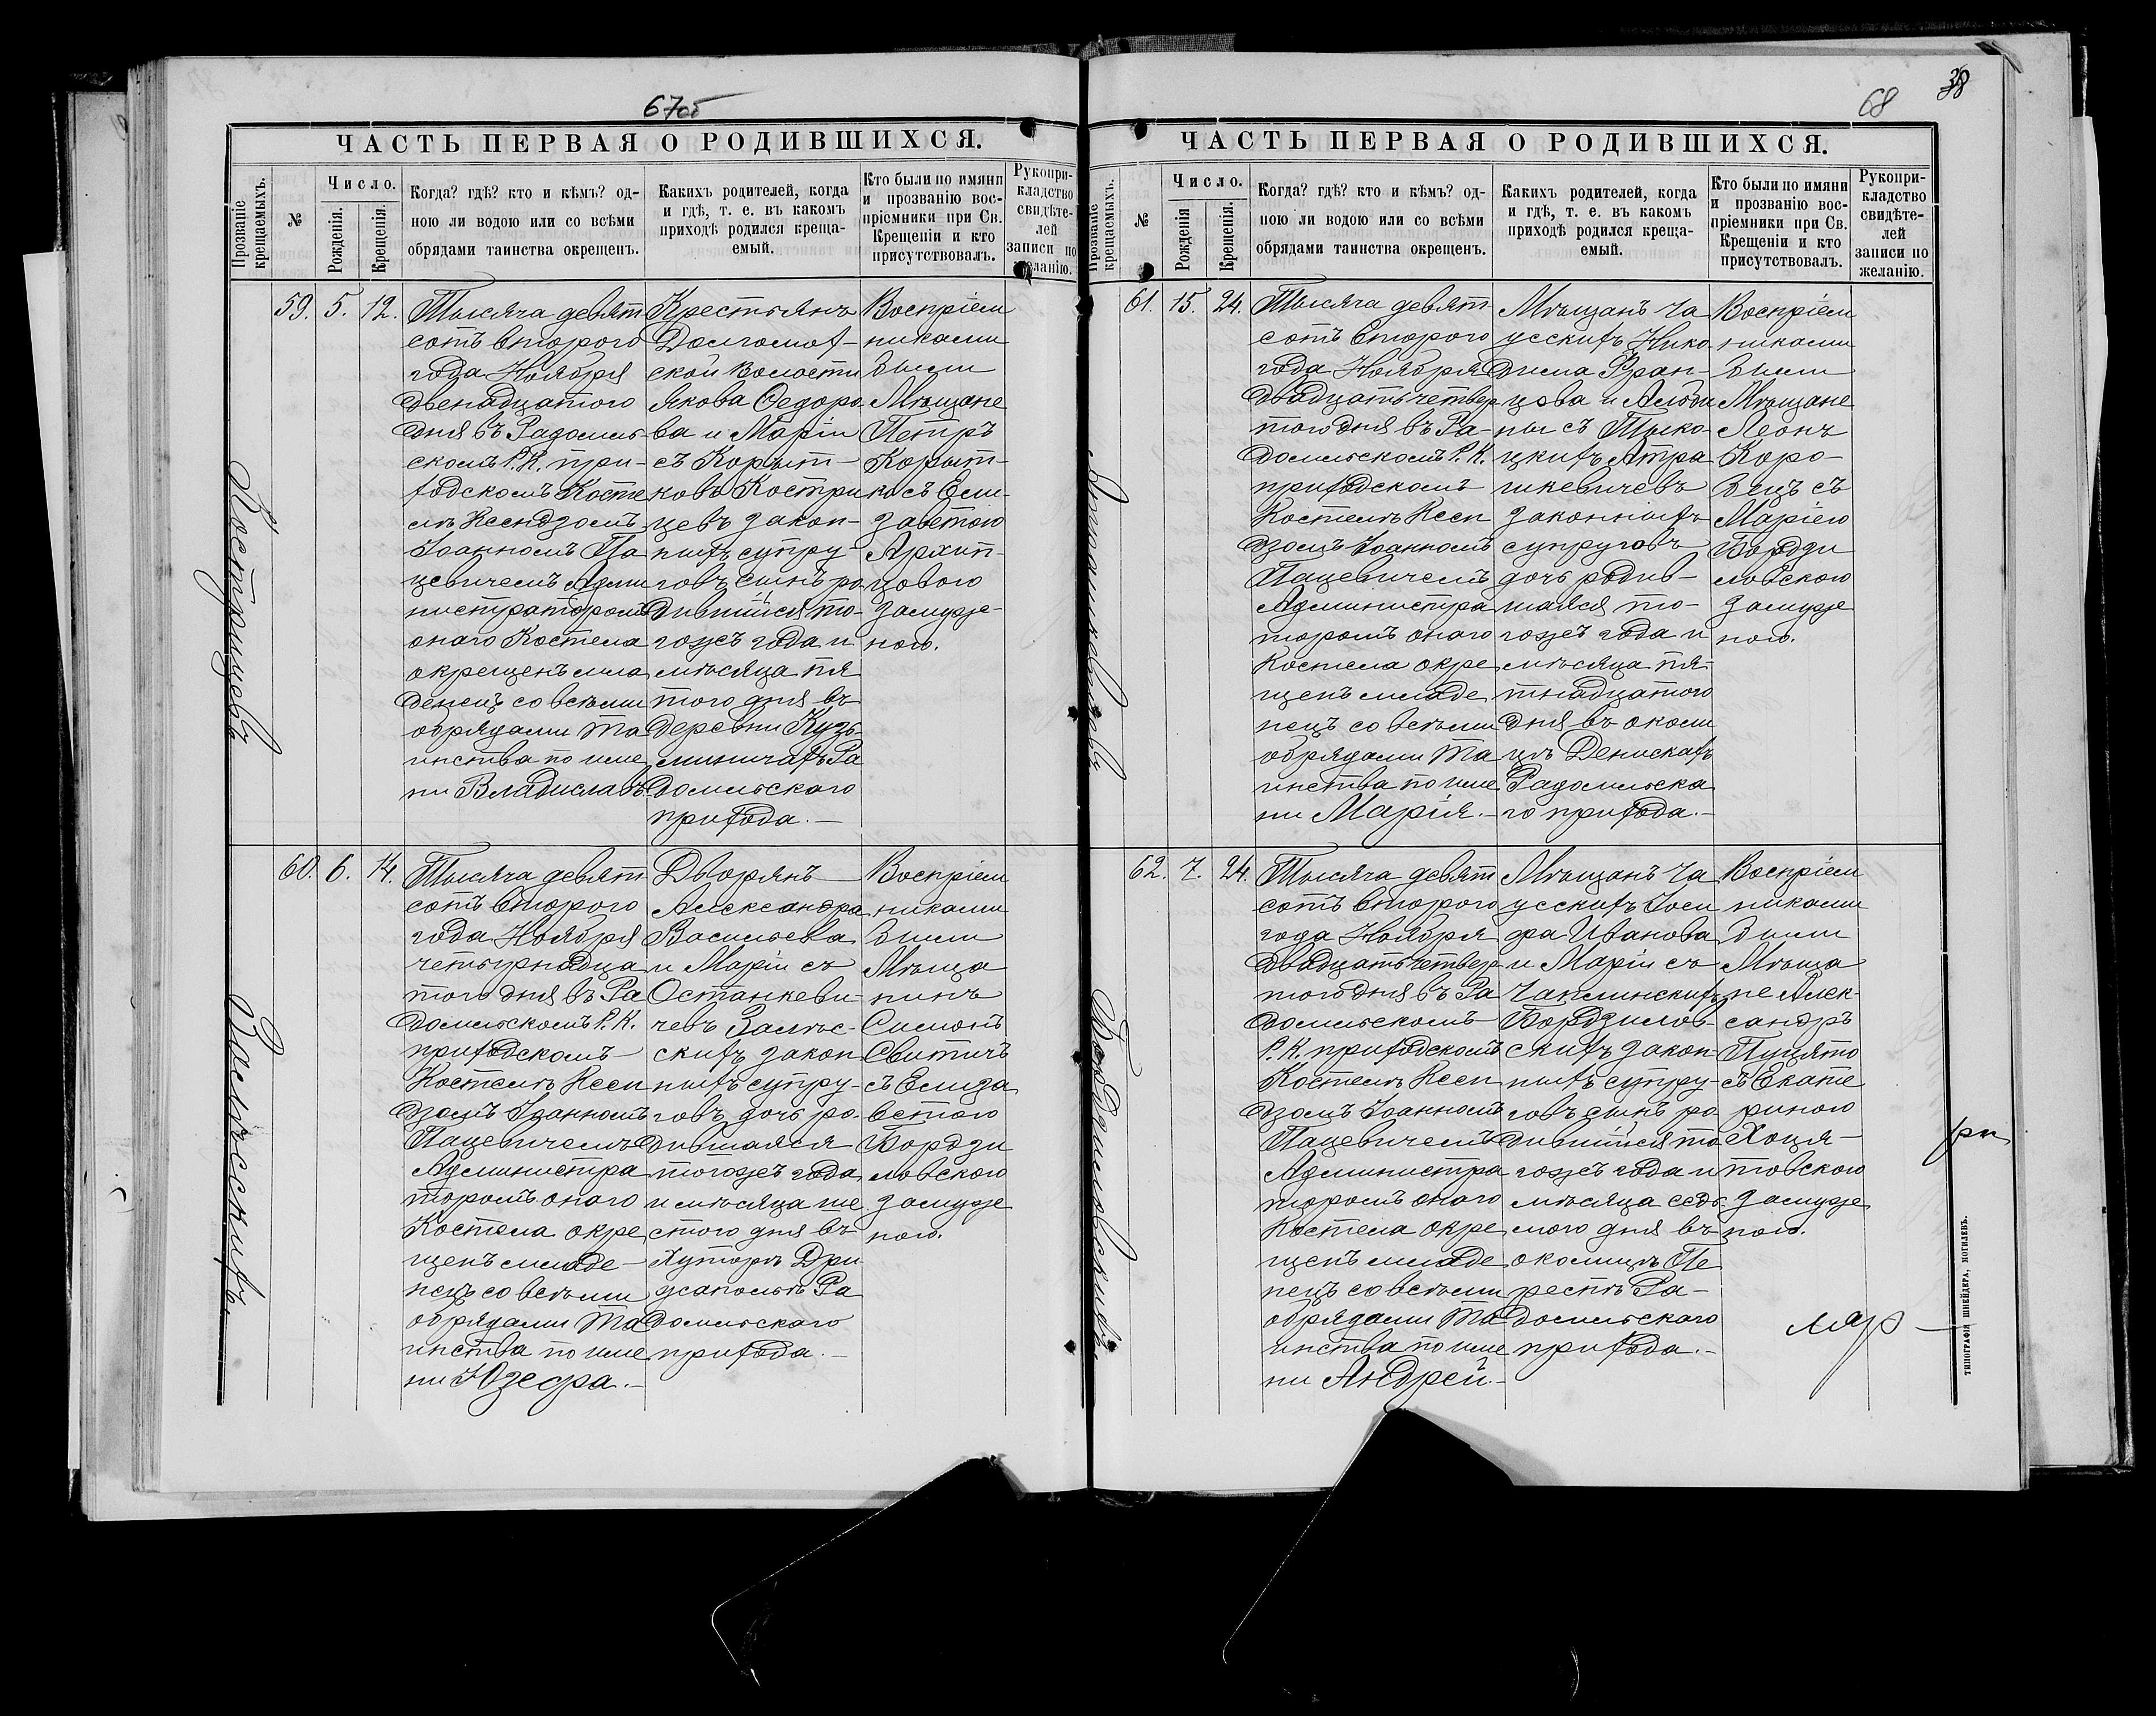 67об
ЧАСТЬ ПЕРВАЯ О РОДИВШИХСЯ.
Прозваніе крещаемыхъ.
№
Число.
Рожденія.
Крещенія.
Когда? гдѣ? кто и кѣмъ? од-
ною ли водою или со всѣми
обрядами таинства окрещенъ.
Какихъ родителей, когда
и гдѣ, т. е. въ какомъ
приходѣ родился креща-
емый.
Кто были по имяни
и прозванію вос-
пріемники при Св.
Крещеніи и кто
присутствовалъ.
Рукопри-
кладство
свидѣте-
лей
записи по
желанію.
Костричевъ
59. 5. 12.
Тысяча девят
сотъ второго
года Ноября
двенадцатого
дня въ Радомль
скомъ Р. К. при-
ходскомъ Косте
лѣ Ксендзомъ
Іоанномъ Па
цевичемъ Адми
нистраторомъ
онаго Костела
окрещенъ мла
денецъ со всѣми
обрядами Та
инства по име
ни Владиславъ.
Крестьянъ
Долгомох-
ской Волости
Якова Федоро
ва и Маріи
съ Корыт-
ковъ Костри
цевъ закон-
ныхъ супру-
говъ сынъ ро
дившійся то-
гожъ года и
мѣсяца пя
того дня въ
деревни Кузь-
миничахъ Ра
домльскаго
прихода.—
Воспріем
никами
были
Мѣщане
Петръ
Корыт-
ко съ Ели-
заветою
Архип-
цовою
замуже-
ною.
Залѣсскихъ.
60. 6. 14.
Тысяча девят
сотъ второго
года Ноября
четырнадца
того дня въ Ра
домльскомъ Р. К.
приходскомъ
Костелѣ Ксен
дзомъ Іоанномъ
Пацевичемъ
Администра
торомъ онаго
Костела окре
щенъ младе-
нецъ со всѣми
обрядами Та
инства по име
ни Юзефа.—
Дворянъ
Александра
Васильева
и Маріи съ
Останкеви-
чевъ Залѣс-
скихъ закон
ныхъ супру-
говъ дочь ро-
дившаяся
тогожъ года
и мѣсяца ше
стого дня въ
Хуторѣ Дри
Ра
домльскаго
прихода.—
Воспріем
никами
были
Мѣща
нинъ
Симонъ
Свитичъ
съ Елиза
ветою
Бордзи
ловскою
замуже
ною.
38
68
ЧАСТЬ ПЕРВАЯ О РОДИВШИХСЯ.
Прозваніе крещаемыхъ.
№
Число.
Рожденія
Крещенія.
Когда? гдѣ? кто и кѣмъ? од-
ною ли водою или со всѣми
обрядами таинства окрещенъ.
Какихъ родителей, когда
и гдѣ, т. е. въ какомъ
приходѣ родился креща-
емый.
Кто были по имяни
и прозванію вос-
пріемники при Св.
Крещеніи и кто
присутствовалъ.
Рукопри-
кладство
свидѣте-
лей
записи по
желанію.
61. 15. 24.
Тысяча девят
сотъ второго
года Ноября
двадцать четвер
того дня въ Ра-
домльскомъ Р. К.
приходскомъ
Костелѣ Ксен
дзомъ Іоанномъ
Пацевичемъ
Администра
торомъ онаго
Костела окре
щенъ младе
нецъ со всѣми
обрядами Та
инства по име
ни Марія.—
Мѣщанъ Ча
усскихъ Нико
дима Фран-
цова и Альби
ны съ Тыко-
цкихъ Ятра
шкевичевъ
законныхъ
супруговъ
дочь родив-
шаяся то-
гожъ года и
мѣсяца пя-
тнадцатого
дня въ околи
цѣ Денискахъ
Радомльска
го прихода.—
Воспріем
никами
были
Мѣщане
Леонъ
Коро-
вецъ съ
Маріею
Бордзи
ловскою
замуже
ною.
Бордзиловскихъ.
62. 7. 24.
Тысяча девят
сотъ второго
года Ноября
двадцать четвер
того дня въ Ра
домльскомъ
Р. К. приходскомъ
Костелѣ Ксен
дзомъ Іоанномъ
Пацевичемъ
Администра
торомъ онаго
Костела окре
щенъ младе
нецъ со всѣми
обрядами Та
инства по име
ни Андрей.—
Мѣщанъ Ча
усскихъ Іоси
фа Иванова
и Маріи съ
Чаплинскихъ
Бордзилов-
скихъ закон-
ныхъ супру-
говъ сынъ ро
дившійся то
гожъ года и
мѣсяца седь
мого дня въ
околицѣ Пе
рестѣ Ра-
домльскаго
прихода.—
Воспріем
никами
были
Мѣща
не Алек-
сандръ
Пуцято
съ Екате
риною
Хоця-
товскою
замуже
ною.
ТИПОГРАФІЯ ШНЕЙДЕРА, МОГИЛЕВЪ.